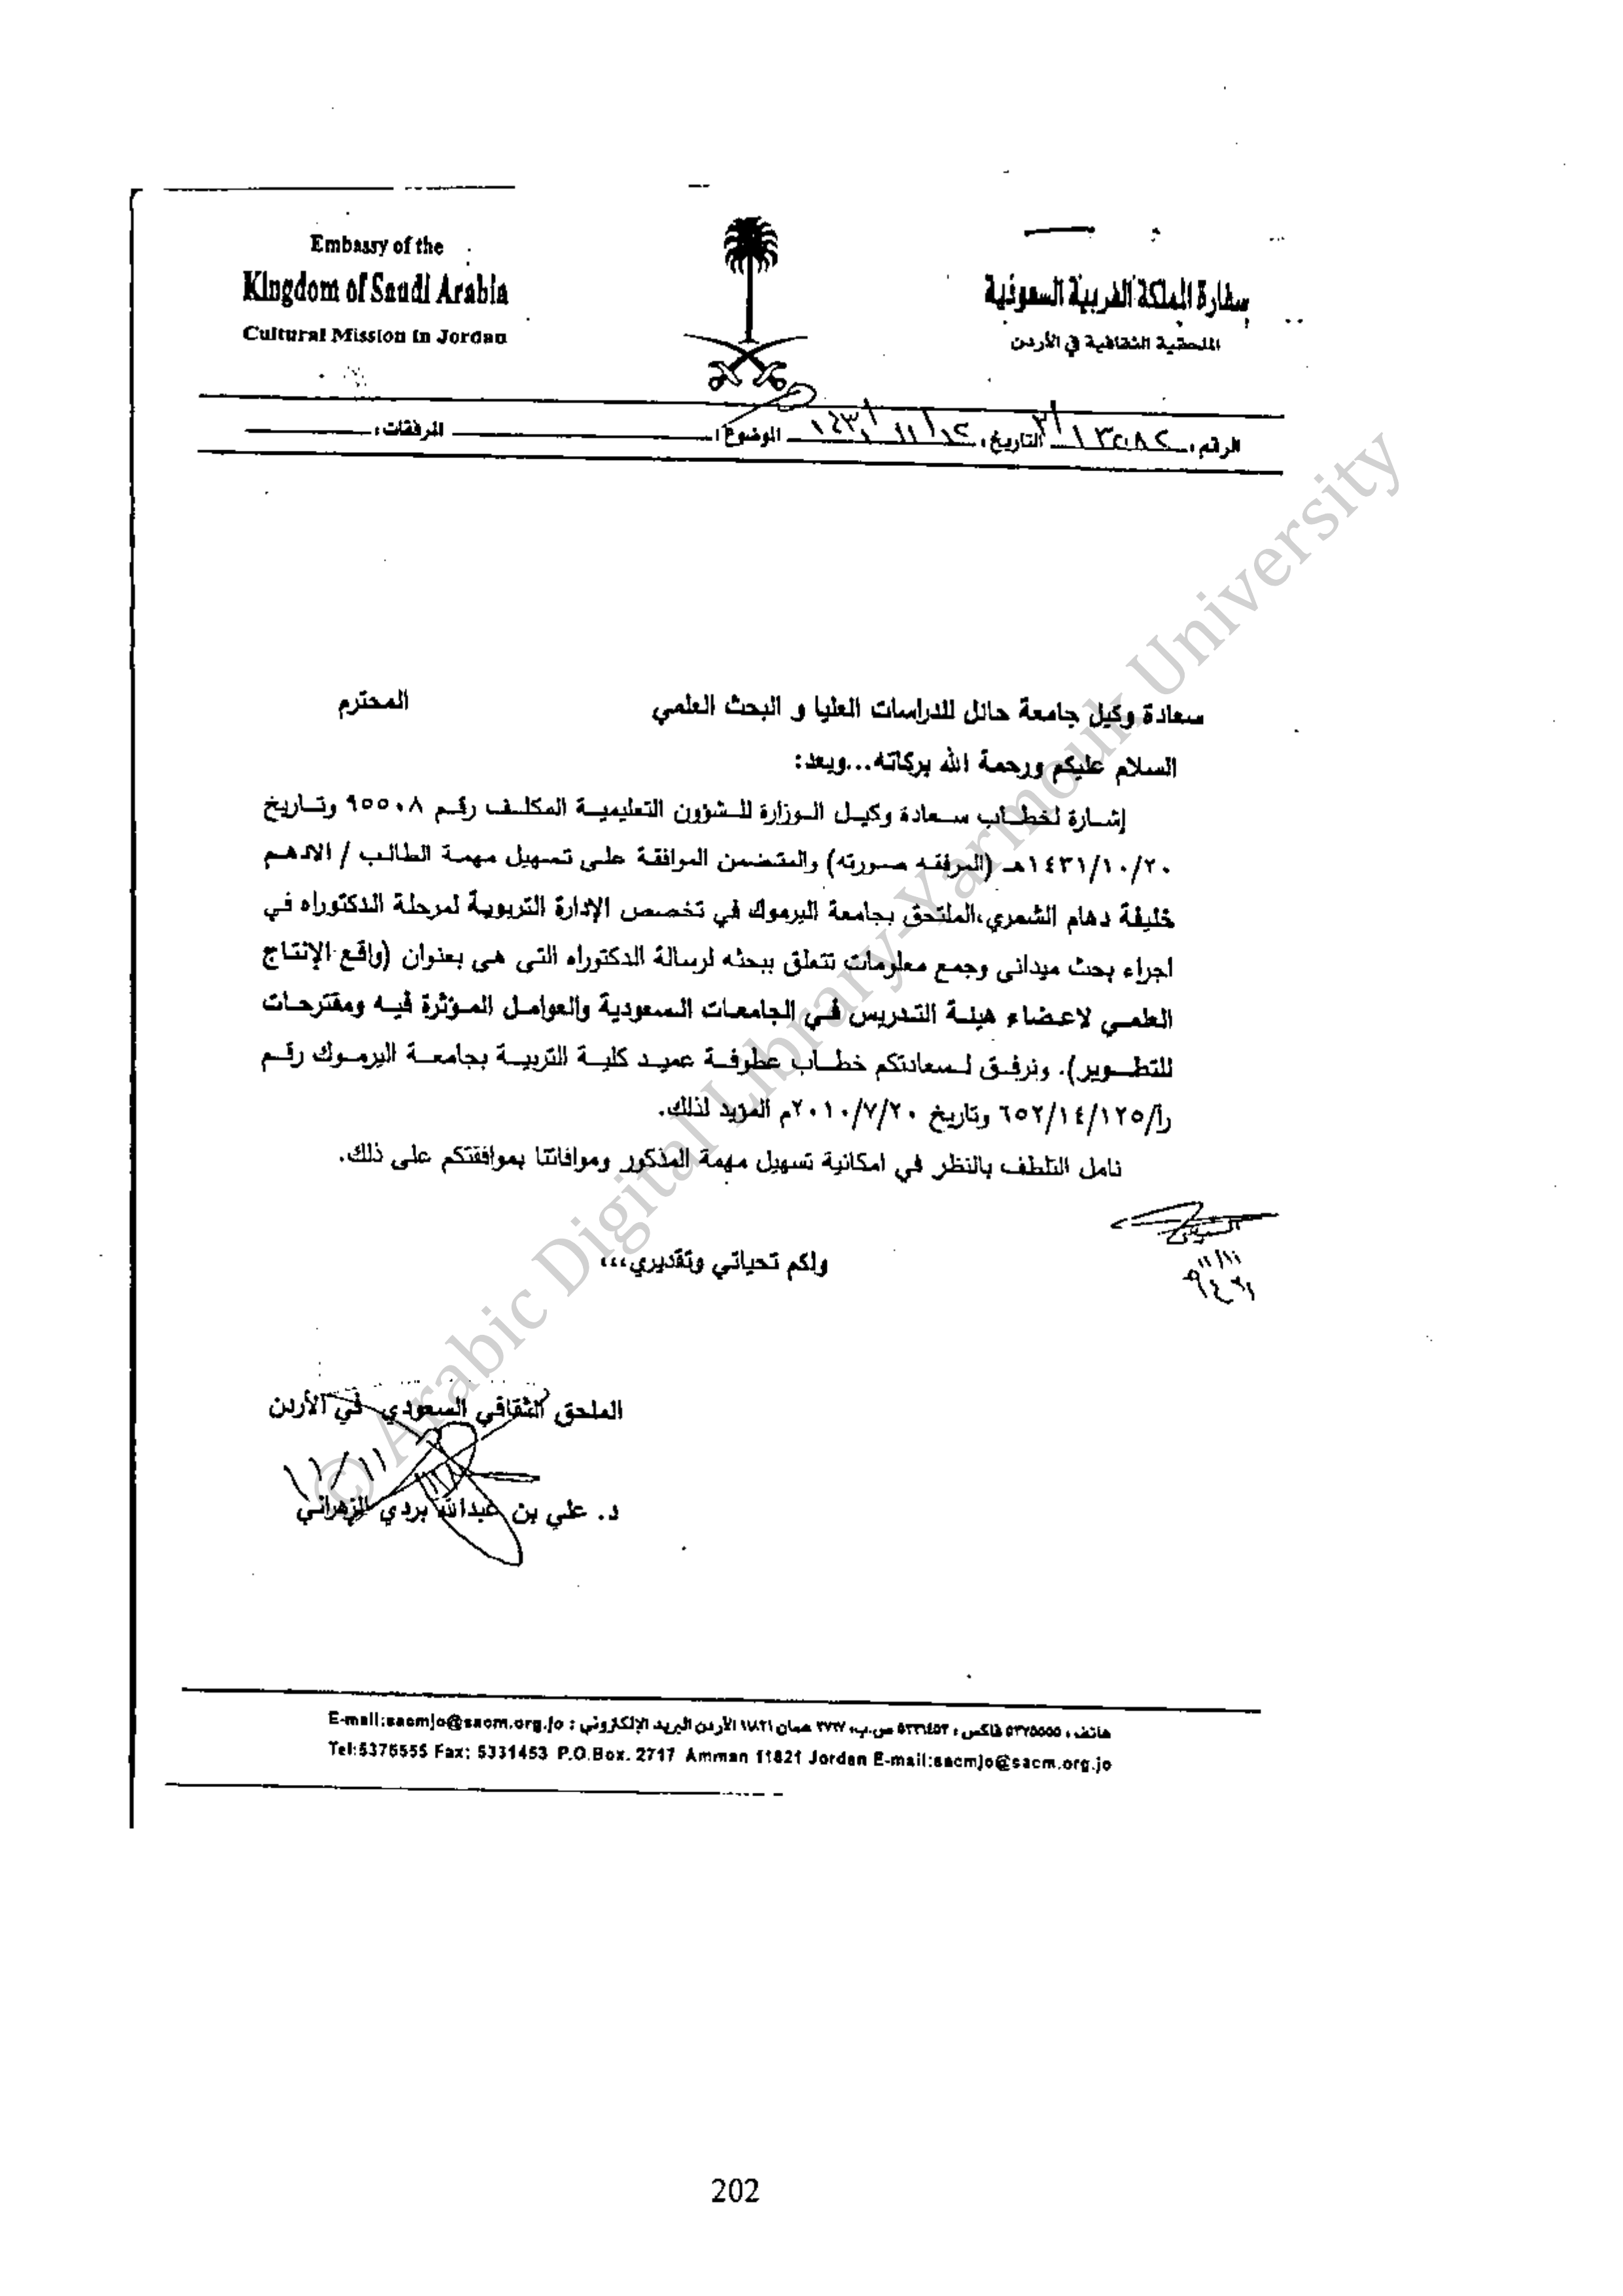 Embassy of the
Kingdom of Saudi Arabia
Cultural Mission in Jordan
سفارة المملكة العربية السعودية
الملحقية الثقافية في الأردن
الرقم: التاريخ: الموضوع: المرفقات:
سعادة وكيل جامعة حائل للدراسات العليا و البحث العلمي المحترم
السلام عليكم ورحمة الله بركاته...وبعد:
إشارة لخطاب سعادة وكيل الوزارة للشؤون التعليمية المكلف رقم ٩٥٥٠٨ وتاريخ
١٤٣١/١٠/٢٠هـ (المرفقه صورته) والمتضمن الموافقة على تسهيل مهمة الطالب / الادهم
خليفة دهام الشمري،الملتحق بجامعة اليرموك في تخصص الإدارة التربوية لمرحلة الدكتوراه في
اجراء بحث ميدانى وجمع معلومات تتعلق ببحثه لرسالة الدكتوراه التى هى بعنوان (واقع الإنتاج
العلمي لاعضاء هيئة التدريس في الجامعات السعودية والعوامل المؤثرة فيه ومقترحات
للتطوير). ونرفق لسعادتكم خطاب عطوفة عميد كلية التربية بجامعة اليرموك رقم
رأ/٦٥٢/١٤/١٢٥ وتاريخ ٢٠١٠/٧/٢٠م المؤيد لذلك.
نامل التلطف بالنظر في امكانية تسهيل مهمة المذكور وموافاتنا بموافقتكم على ذلك.
ولكم تحياتي وتقديري،،،
الملحق الثقافي السعودي في الأردن
١١/١١
د. علي بن عبدالله بردي الزهراني
هاتف: ٥٣٧٥٥٥٥ فاكس: ٥٣٣١٤٥٣ ص.ب: ٢٧١٧ عمان ١١٨٢١ الأردن البريد الإلكتروني: E-mail:sacmjo@sacm.org.jo
Tel:5375555 Fax: 5331453 P.O.Box. 2717 Amman 11821 Jordan E-mail:sacmjo@sacm.org.jo
© Arabic Digital Library-Yarmouk University
202